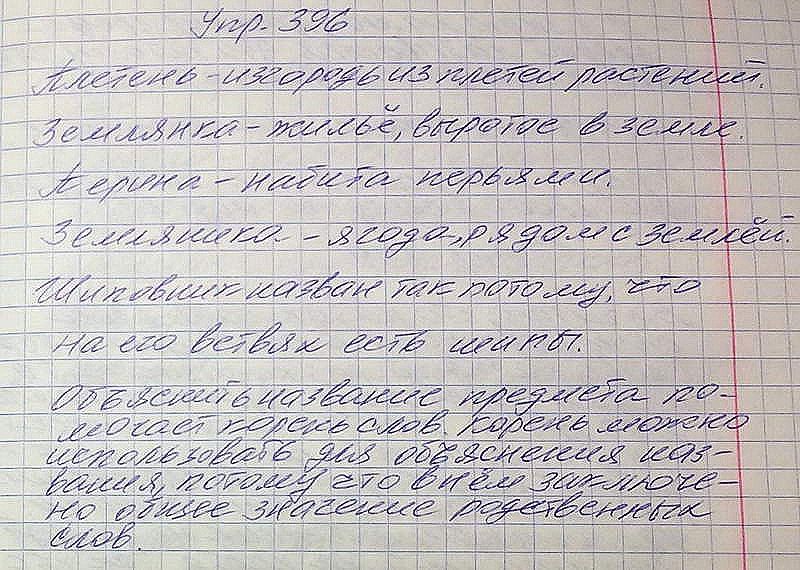 Упр. 396
Плетень - изгородь из плетей растений.
Землянка - жильё, вырытое в земле.
Перина - набита перьями.
Земляника - ягода, рядом с землёй.
Шиповник назван так потому, что
на его ветвях есть шипы.
Объяснить название предмета по-
могает корень слов. Корень можно
использовать для объяснения наз-
вания, потому что в нём заключе-
но общее значение родственных
слов.